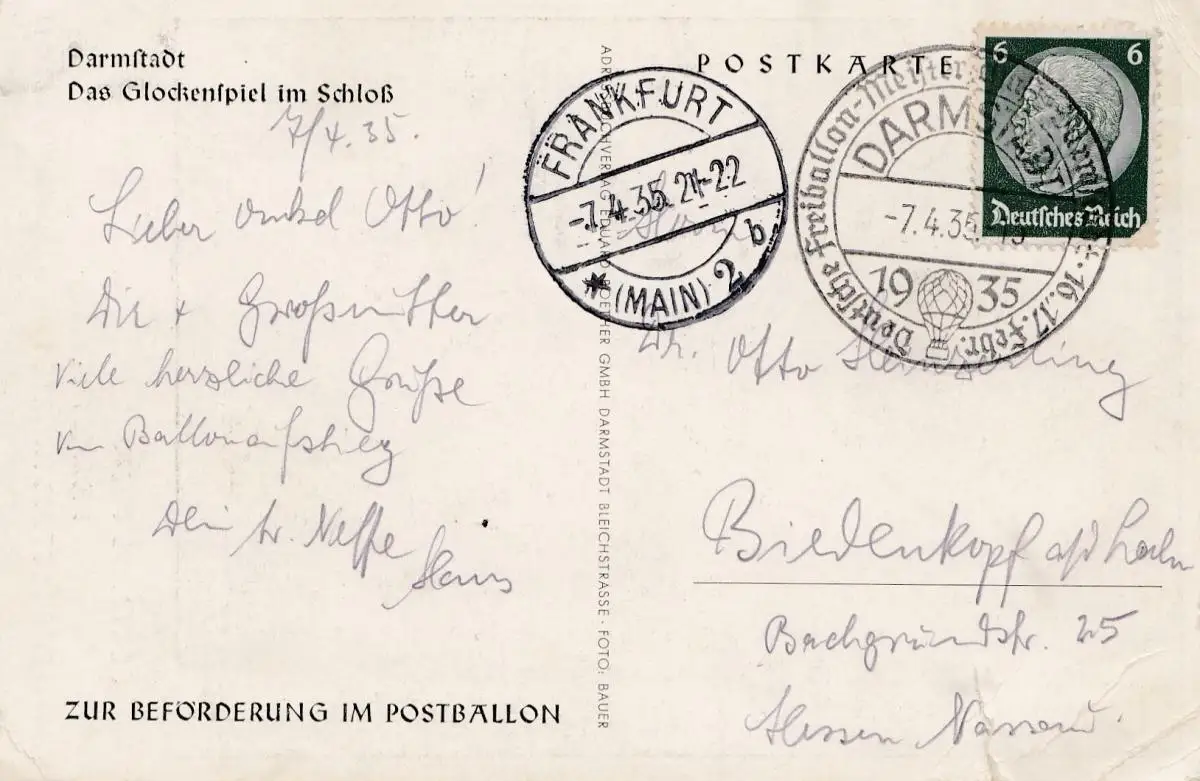 Darmstadt
Das Glockenspiel im Schloß
7/4.35.
Lieber Onkel Otto!
Dir + Großmutter
viele herzliche Grüße
vom Ballonaufstieg
Dein tr. Neffe
Hans
ZUR BEFÖRDERUNG IM POSTBALLON
VERLAG EDUARD ROETHER GMBH DARMSTADT BLEICHSTRASSE · FOTO: BAUER
POSTKARTE
FRANKFURT
-7.4.35.21-22
* (MAIN) 2 b
Deutsche Freiballon-Meister
DARMSTADT
-7.4.35
1935
16.17.Febr.
6 6
Deutsches Reich
Herrn
Dr. Otto
Biedenkopf a/d Lahn
Bachgrundstr. 25
Hessen Nassau.